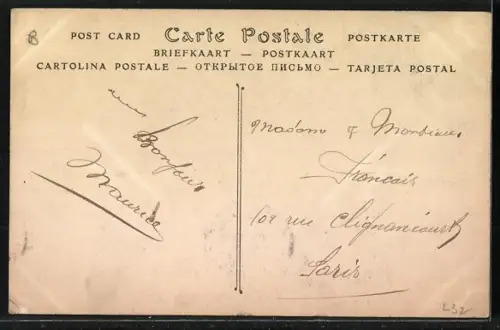 B
POST CARD Carte Postale POSTKARTE
BRIEFKAART — POSTKAART
CARTOLINA POSTALE — ОТКРЫТОЕ ПИСЬМО — TARJETA POSTAL
Bonjour
Maurice
Madame & Monsieur
Francais
rue Clignancourt
Paris